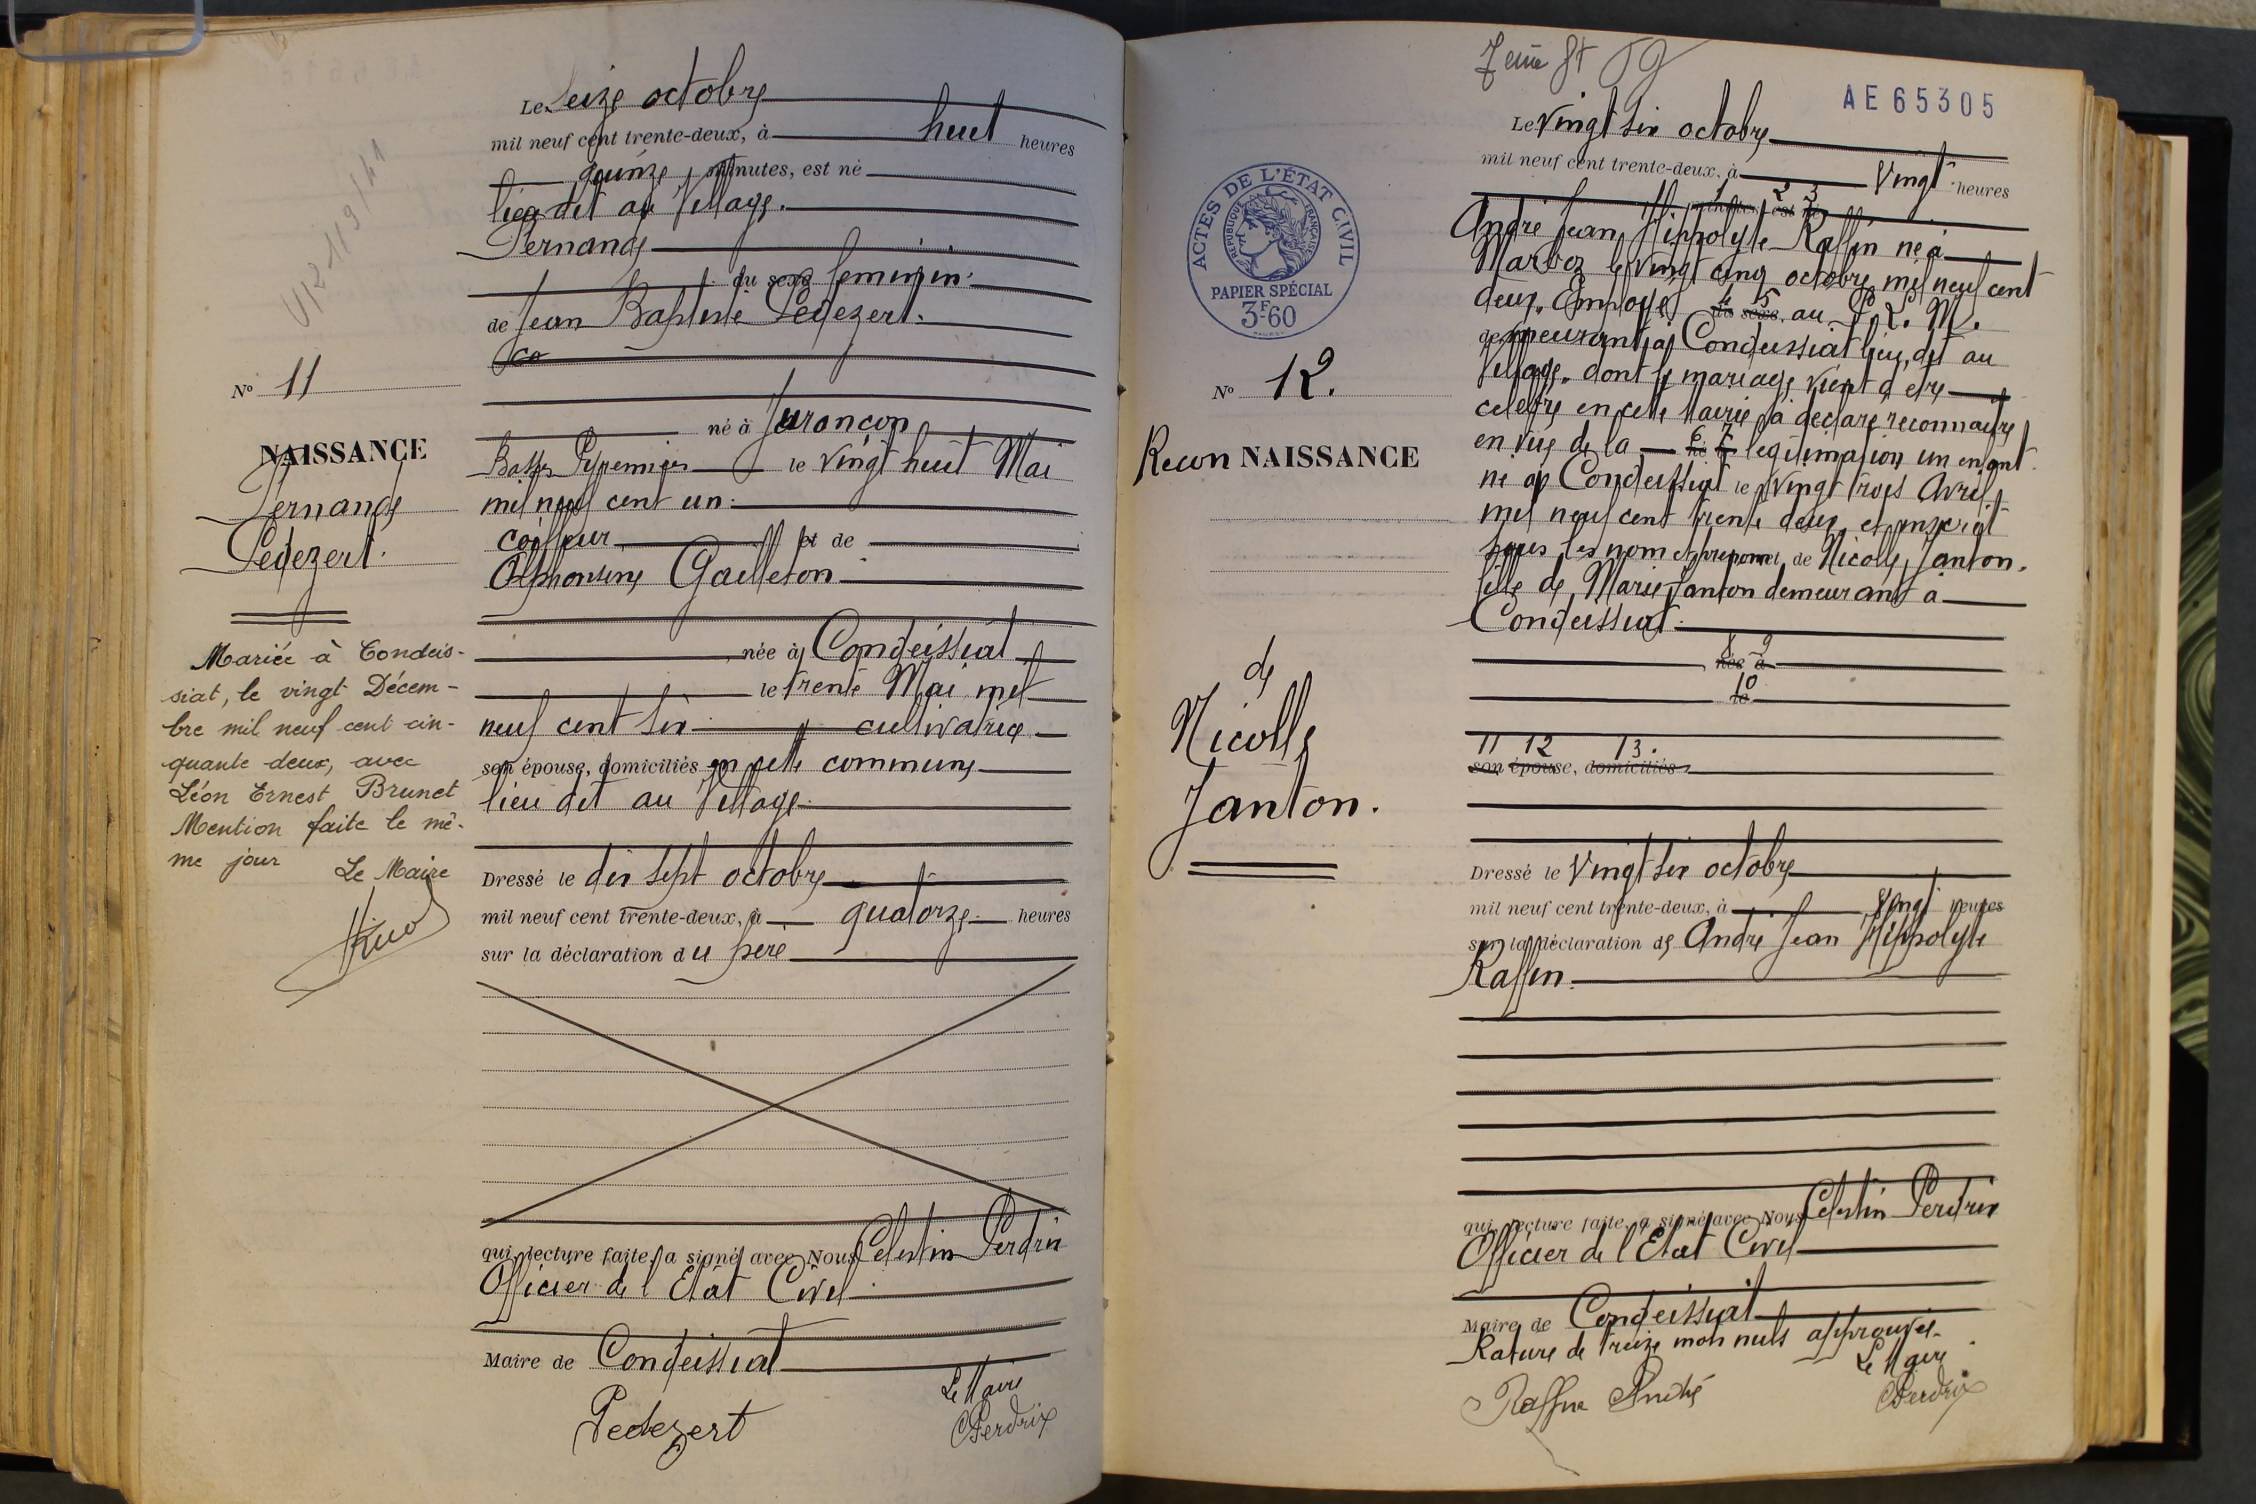 Le Seize octobre
mil neuf cent trente-deux, à huit heures
quinze minutes, est né
lieu dit au Village.
Fernande
du sexe feminin.
de Jean Baptiste Pedezert.
né à Jurançon
Basses Pyrennées le vingt huit Mai
mil neuf cent un.
coiffeur et de
Alphonsine Gailleton
née à Condeissiat
le trente Mai mil
neuf cent six cultivatrice
son épouse, domiciliés en cette commune
lieu dit au Village.
Dressé le dix sept octobre
mil neuf cent trente-deux, à quatorze heures
sur la déclaration du père
qui, lecture faite, a signé avec Nous Célestin Perdrix
Officier de l'Etat Civil
Maire de Condeissiat
Le Maire
Pedezert
CPerdrix
N° 11
NAISSANCE
Fernande
Pedezert.
Mariée à Condeis-
siat, le vingt Décem-
bre mil neuf cent cin-
quante deux, avec
Léon Ernest Brunet
Mention faite le mê-
me jour
Le Maire
AE65305
Le Vingt six octobre
mil neuf cent trente-deux, à Vingt heures
1 2 3
minutes, est né
André Jean Hippolyte Raffin né à
Marboz le vingt cinq octobre mil neuf cent
deux. Employé 4 5 du sexe au P. L. M.
demeurant à Condeissiat lieu dit au
Village. dont le mariage vient d'etre
celebre en cette Mairie a déclaré reconnaitre
en vue de la 6 7 légitimation un enfant
né à Condeissiat le vingt trois Avril
mil neuf cent trente deux et inscrit
sous les nom et prenom de Nicolle Janton.
fille de Marie Janton demeurant à
Condeissiat.
8 9
née à
10
le
11 12 13.
son épouse, domiciliés
Dressé le Vingt six octobre
mil neuf cent trente-deux, à Vingt heures
sur la déclaration de André Jean Hippolyte
Raffin.
qui, lecture faite, a signé avec Nous Célestin Perdrix
Officier de l'Etat Civil
Maire de Condeissiat
Rature de treize mots nuls approuvée.
Le Maire
CPerdrix
ACTES DE L'ÉTAT CIVIL
RÉPUBLIQUE FRANÇAISE
PAPIER SPÉCIAL
3F60
N° 12.
Recon NAISSANCE
de
Nicolle
Janton.